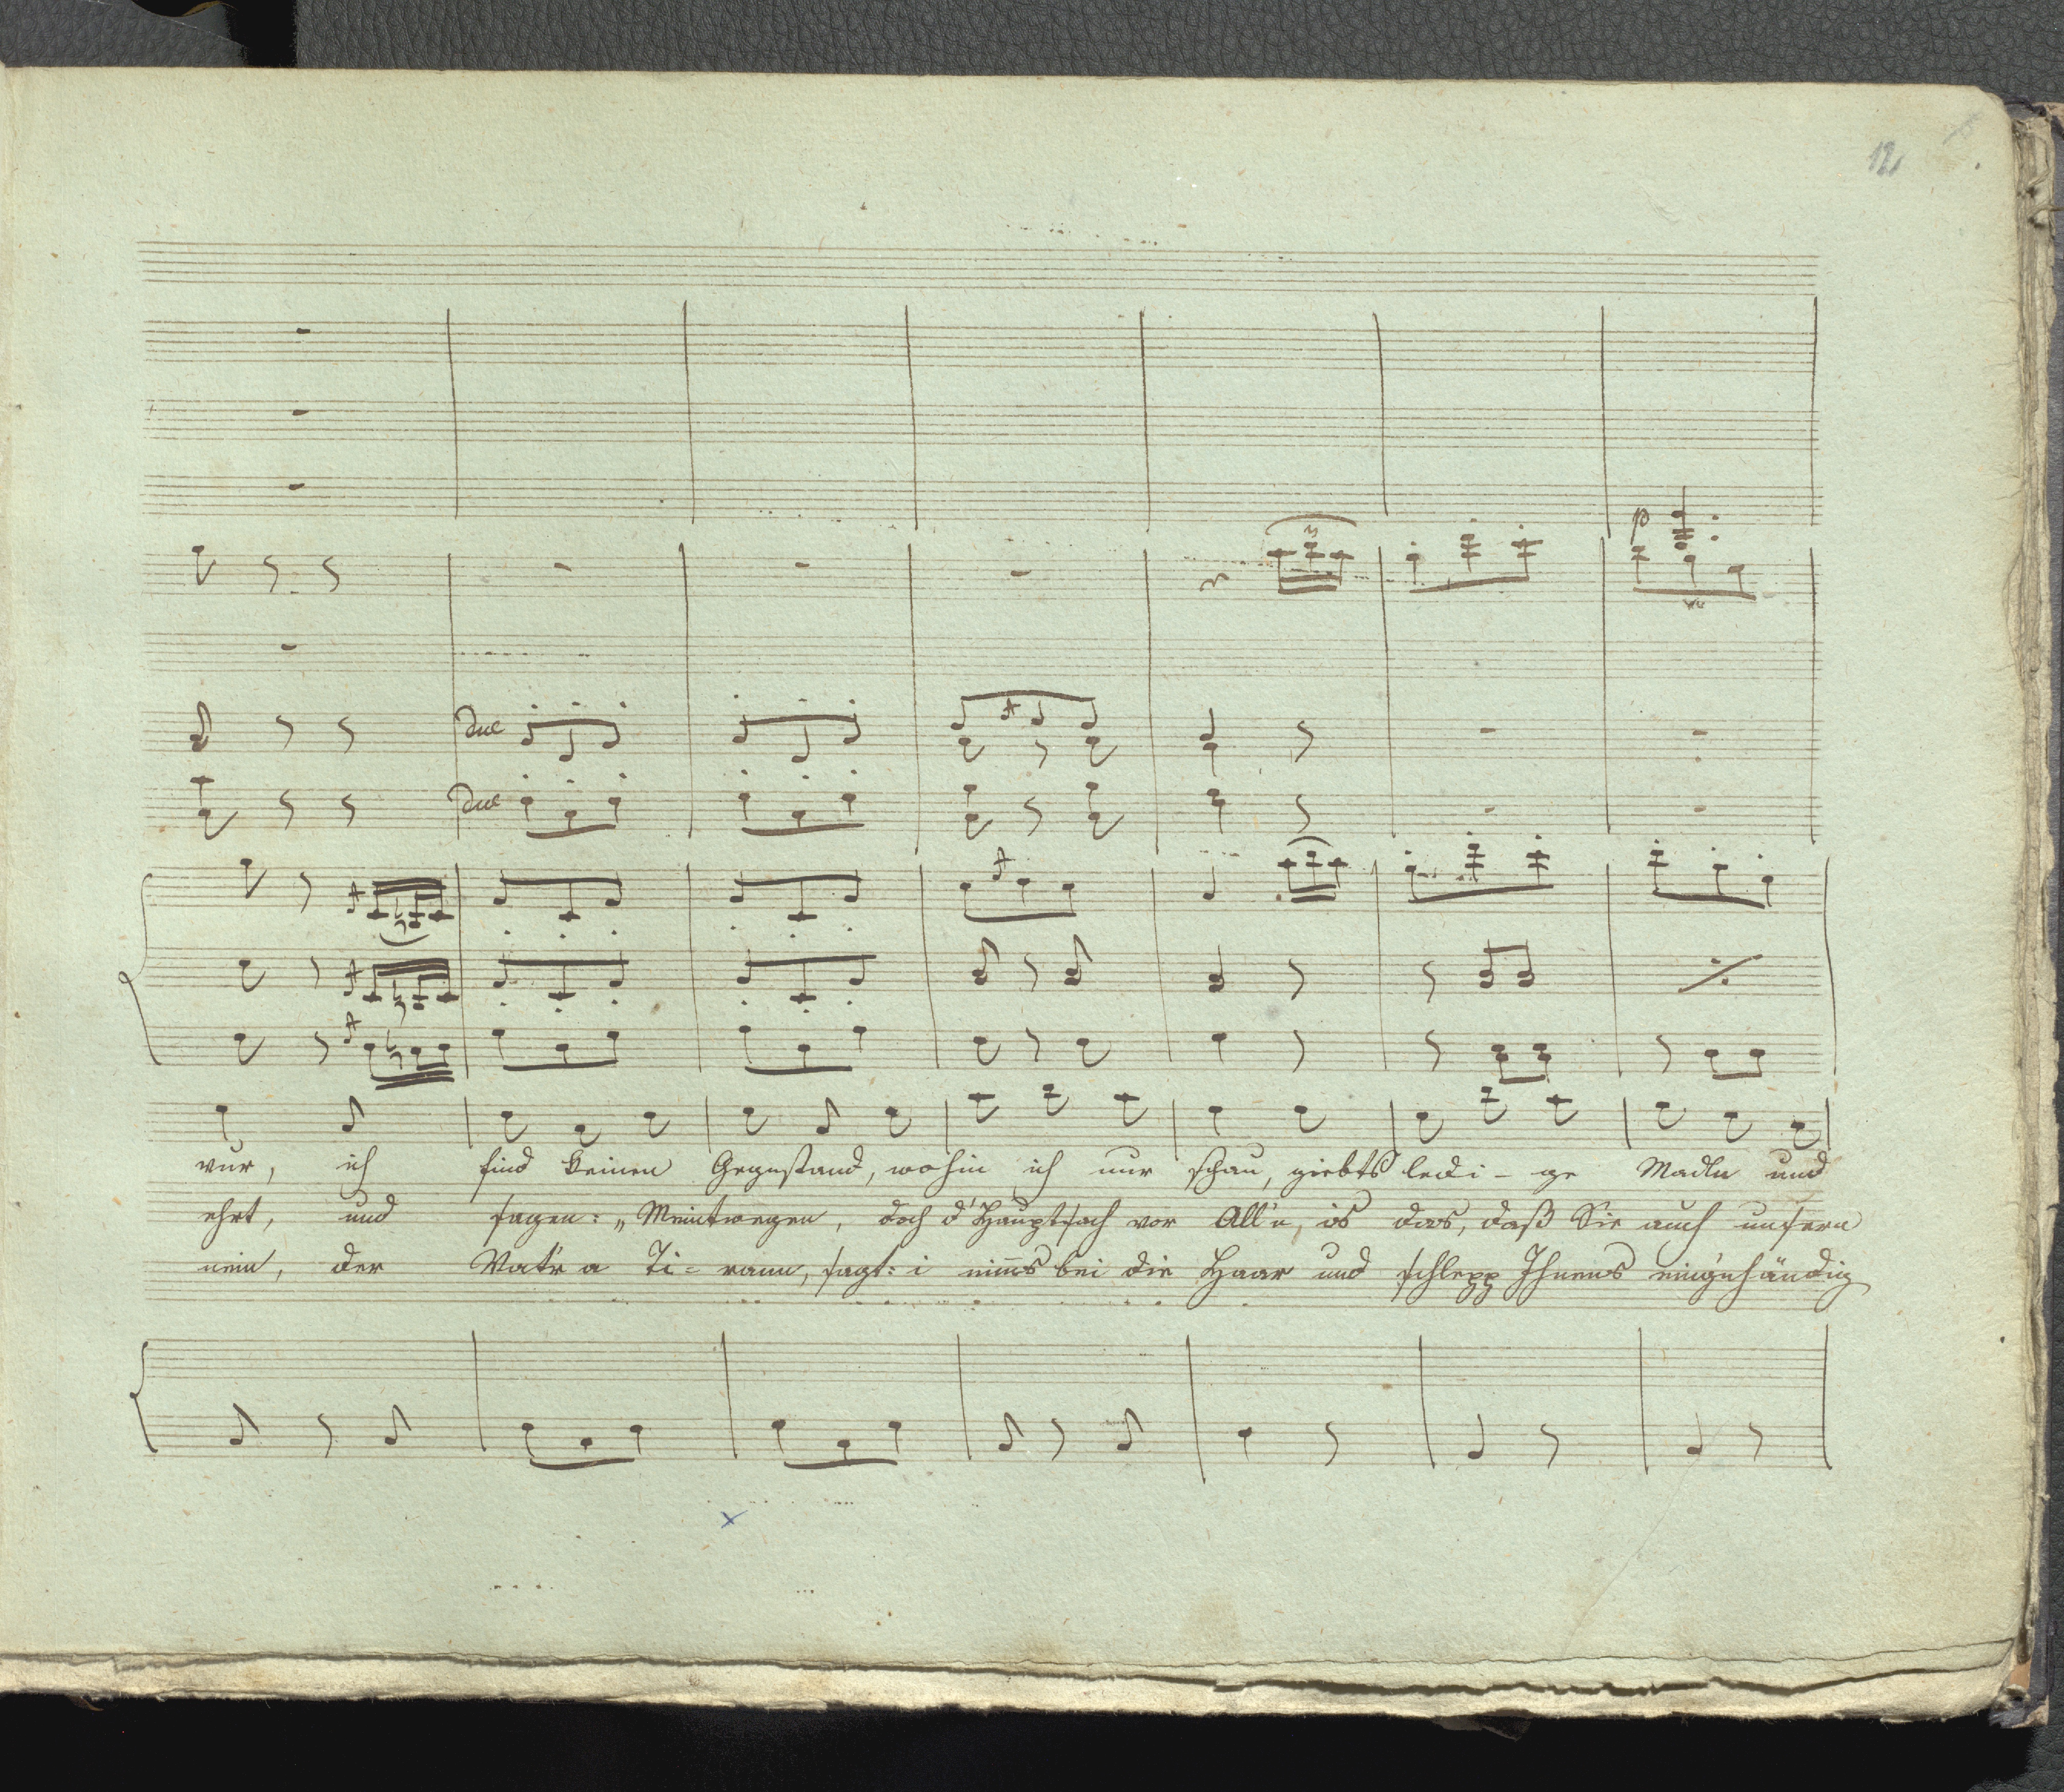 12
p
due
due
vur, ich find keinen Gegenstand, wohin ich nur schau, giebts ledi - ge Madln und
ehrt, und sagen: „Meintwegen, doch d'Hauptsach vor All'n, is das, daß Sie auch unsern
nein, der Vat'r a Ti = rann, sagt: i nim̅s bei die Haar und schlepp Ihnens eing'nhändig